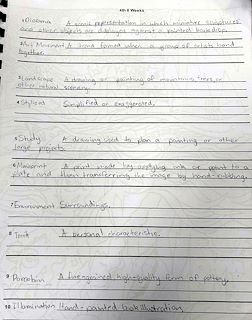 4th 6 Weeks
1 Diorama A small representation in which miniature sculptures
and other objects are displayed against a painted backdrop.
2 Art Movement A trend formed when a group of artists band
together.
3 Landscape A drawing or painting of mountains, trees, or
other natural scenery.
4 Stylized Simplified or exaggerated.
5 Study A drawing used to plan a painting or other
large projects
6 Monoprint A print made by applying ink or paint to a
plate and then transferring the image by hand-rubbing.
7 Environment Surroundings.
8 Trait A personal characteristic.
9 Porcelain A fine-grained, high-quality form of pottery.
10 Illumination Hand-painted book illustration.